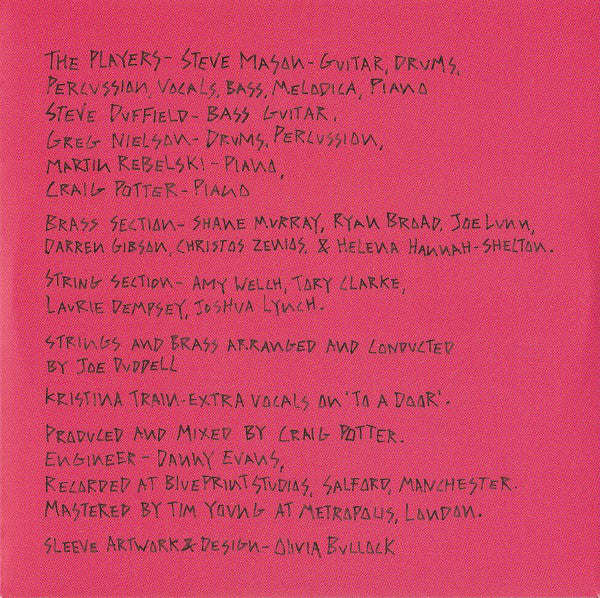 THE PLAYERS- STEVE MASON- GUITAR, DRUMS,
PERCUSSION, VOCALS, BASS, MELODICA, PIANO
STEVE DUFFIELD- BASS GUITAR.
GREG NIELSON- DRUMS, PERCUSSION,
MARTIN REBELSKI- PIANO,
CRAIG POTTER- PIANO
BRASS SECTION- SHANE MURRAY, RYAN BROAD, JOE LUNN,
DARREN GIBSON, CHRISTOS ZENIOS, & HELENA HANNAH-SHELTON.
STRING SECTION- AMY WELCH, TORY CLARKE,
LAURIE DEMPSEY, JOSHUA LYNCH.
STRINGS AND BRASS ARRANGED AND CONDUCTED
BY JOE DUDDELL
KRISTINA TRAIN-EXTRA VOCALS ON 'TO A DOOR'.
PRODUCED AND MIXED BY CRAIG POTTER.
ENGINEER- DANNY EVANS,
RECORDED AT BLUEPRINT STUDIOS, SALFORD, MANCHESTER.
MASTERED BY TIM YOUNG AT METROPOLIS, LONDON.
SLEEVE ARTWORK & DESIGN- OLIVIA BULLOCK